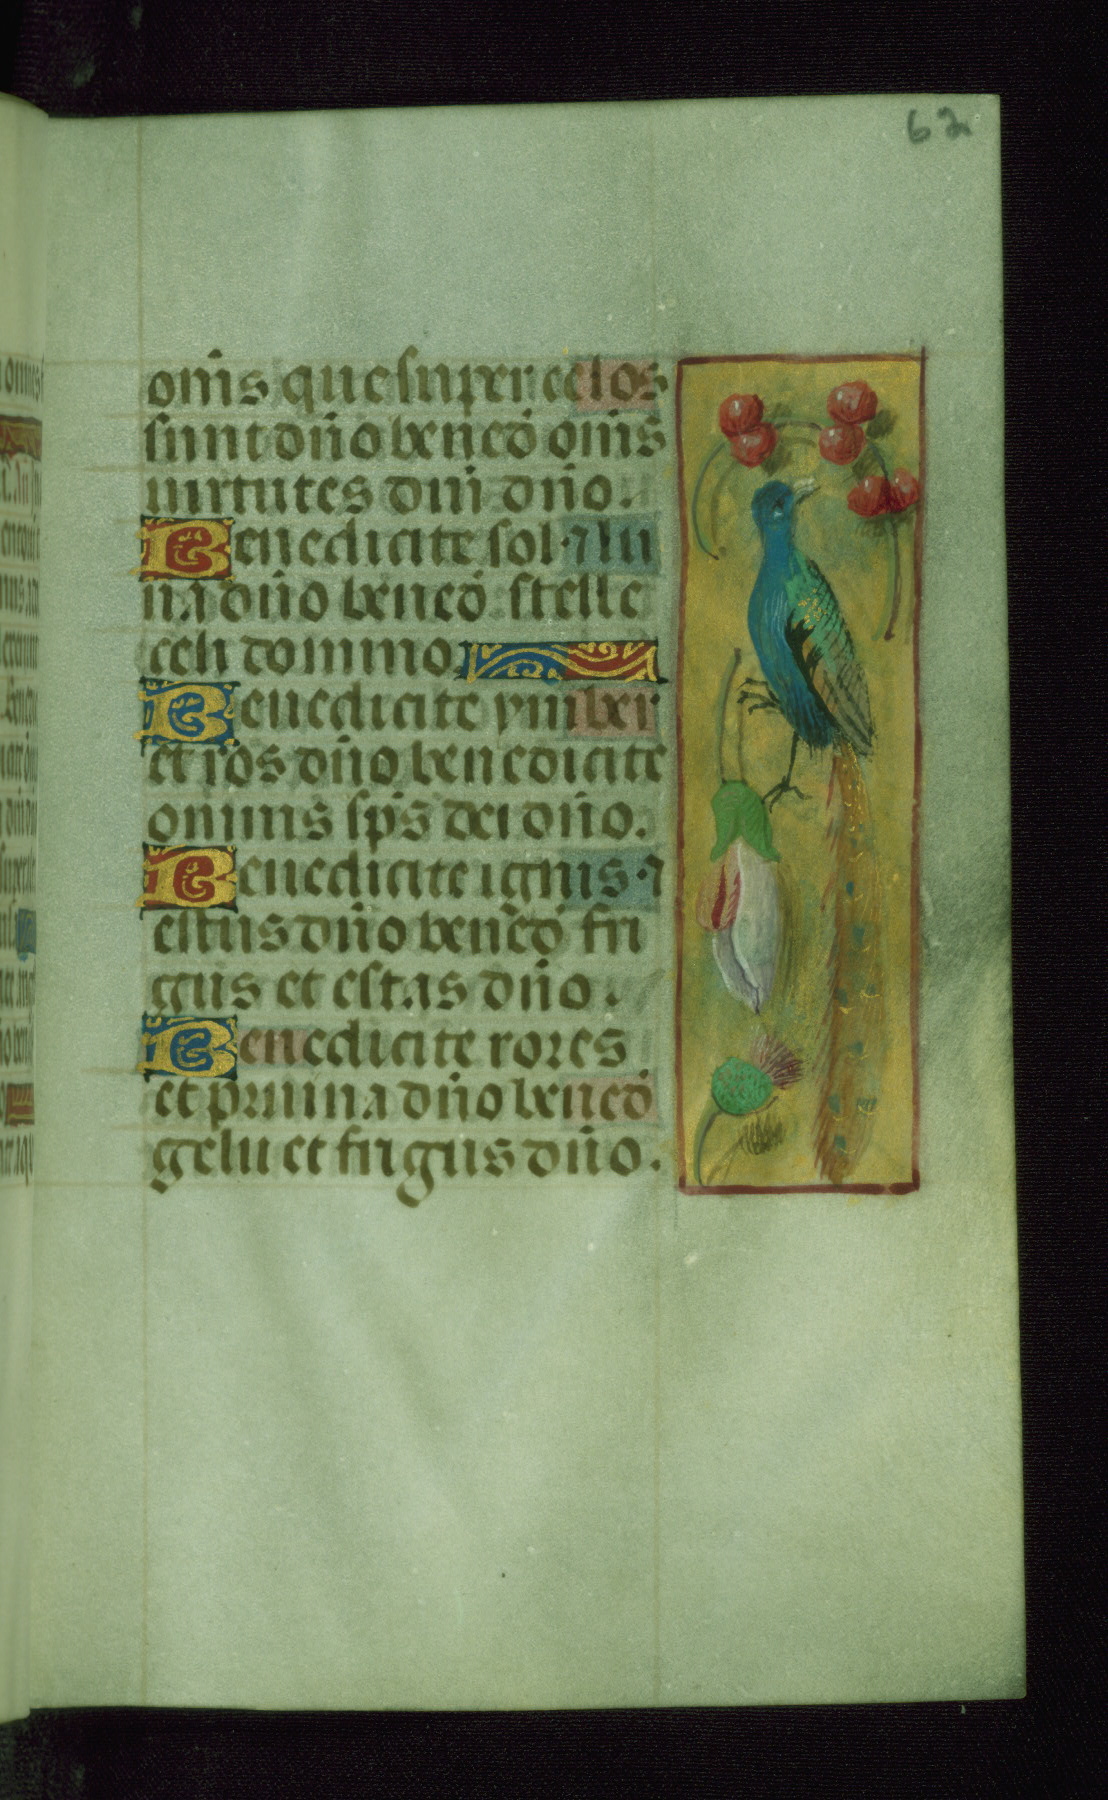 62
om̅s que super celos
sunt dn̅o bened̅ om̅s
uirtutes dn̅i dn̅o.
Benedicite sol ⁊ lu
na dn̅o bened̅ stelle
celi domino.
Benedicite ymber
et ros dn̅o benedicite
omnis sps̅ dei dn̅o.
Benedicite ignis ⁊
estus dn̅o bened̅ fri
gus et estas dn̅o.
Benedicite rores
et pruina dn̅o bened̅
gelu et frigus dn̅o.